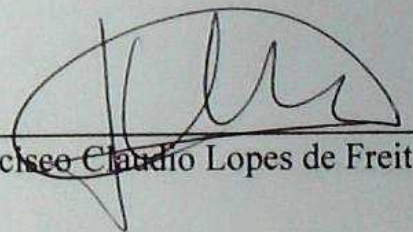 ciseo Claudio Lopes de Freit